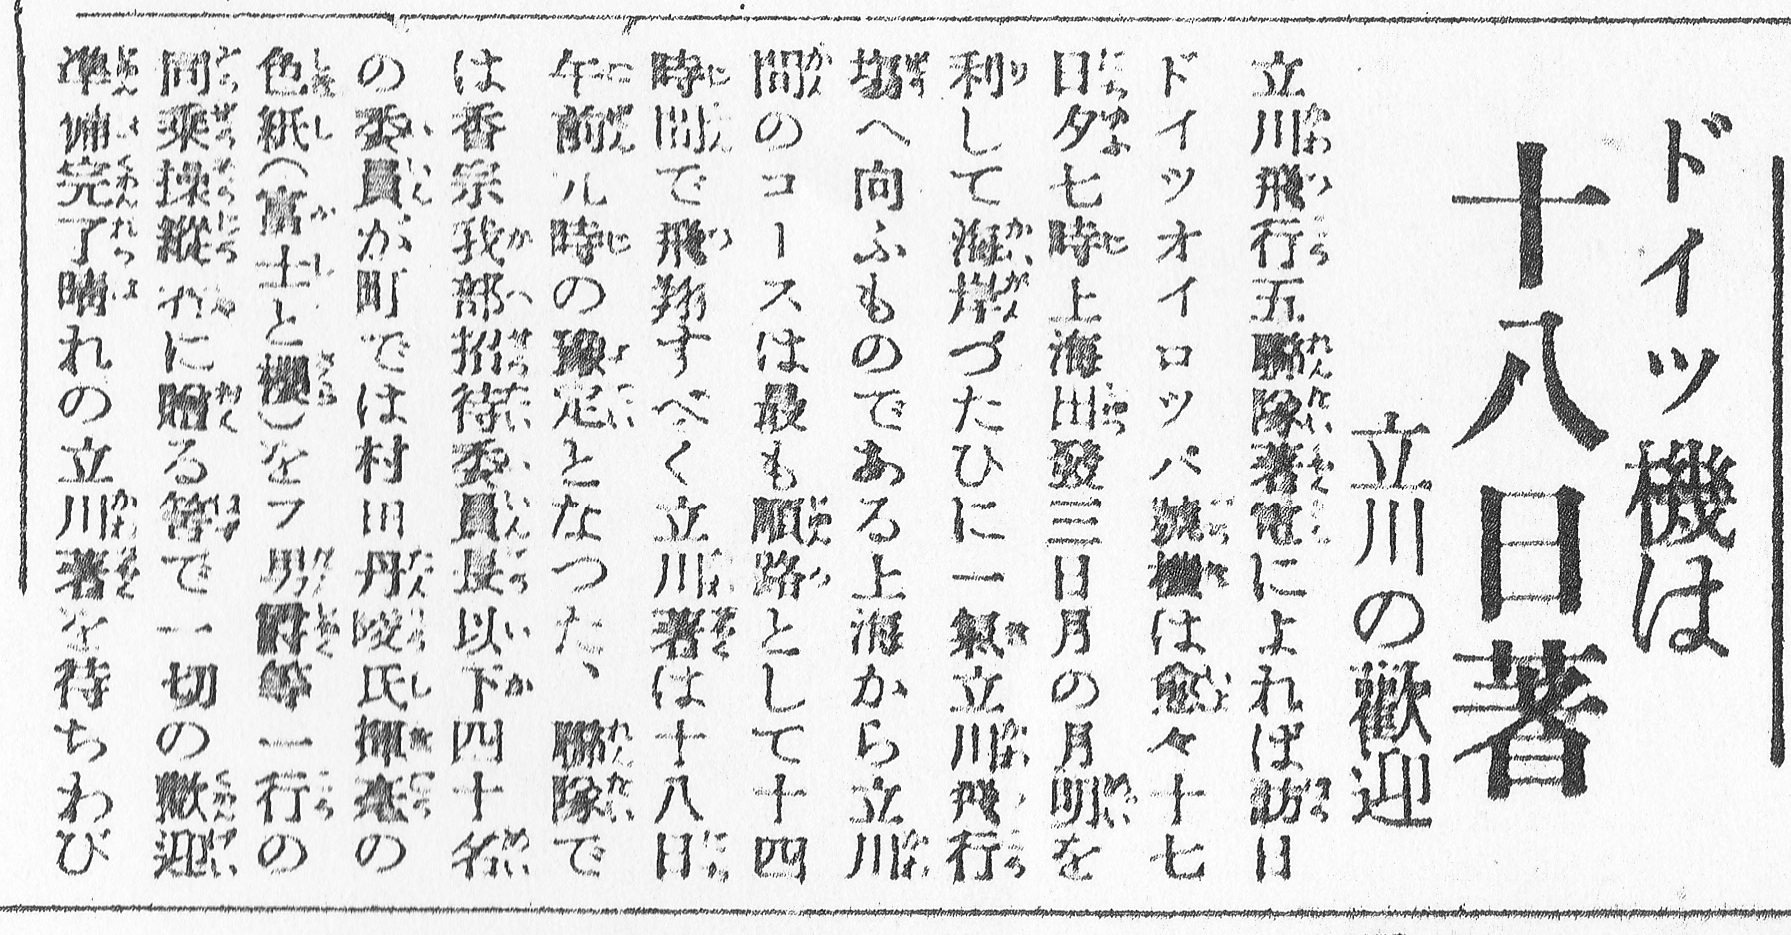 ドイツ機は
十八日著
立川の歡迎
立川飛行五聯隊著電によれば訪日
ドイツオイロツパ號機は愈々十七
日夕七時上海出發三日月の月明を
利して海岸づたひに一氣立川飛行
塲へ向ふものである上海から立川
間のコースは最も順路として十四
時間で飛翔すべく立川著は十八日
午前九時の豫定となつた、聯隊で
は香宗我部招待委員長以下四十名
の委員が町では村田丹陵氏揮毫の
色紙(富士と櫻)をフ男爵等一行の
同乘操縱者に贈る筈で一切の歡迎
準備完了晴れの立川著を待ちわび